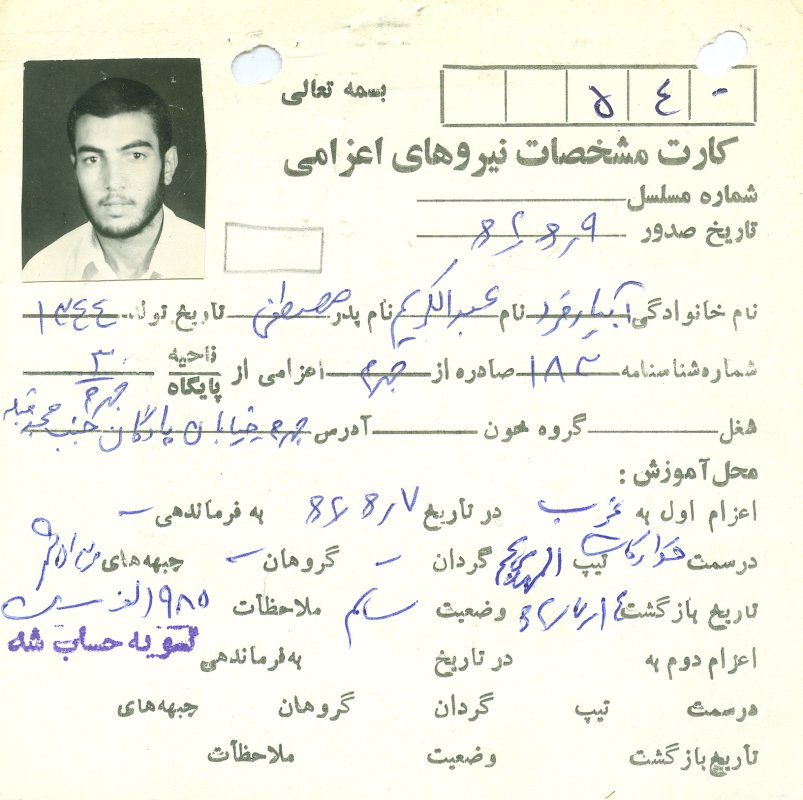 ۵ ٤ -
بسمه تعالی
کارت مشخصات نیروهای اعزامی
شماره مسلسل
تاریخ صدور
نام خانوادگی آبیار فرد نام عبدالکریم نام پدر مصطفی تاریخ تولد ۱۳٤٤
شماره شناسنامه ۱۸۳ صادره از جهرم اعزامی از ناحیه ۳
پایگاه جهرم
شغل گروه خون آدرس جهرم خیابان پادگان جنب
محل آموزش :
اعزام اول به غرب در تاریخ به فرماندهی -
درسمت تیپ المهدی گردان - گروهان - جبهه‌های
تاریخ بازگشت وضعیت سالم ملاحظات
تسویه حساب شد
اعزام دوم به در تاریخ به فرماندهی
درسمت تیپ گردان گروهان جبهه‌های
تاریخ بازگشت وضعیت ملاحظات